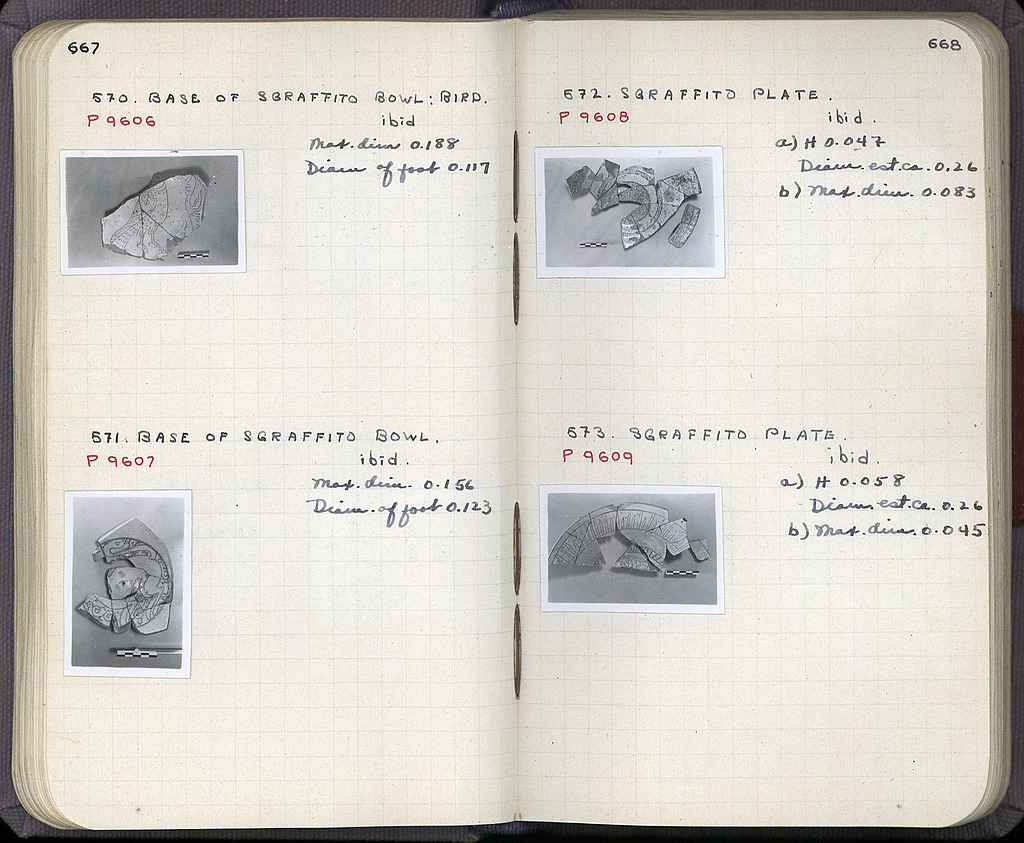 667
570. BASE OF SGRAFFITO BOWL: BIRD.
P 9606
ibid
Max. dim 0.188
Diam of foot 0.117
571. BASE OF SGRAFFITO BOWL.
P 9607
ibid.
Max. dim. 0.156
Diam. of foot 0.123
668
572. SGRAFFITO PLATE.
P 9608
ibid.
a) H 0.047
Diam. est. ca. 0.26
b) Max. dim. 0.083
573. SGRAFFITO PLATE.
P 9609
ibid.
a) H 0.058
Diam. est. ca. 0.26
b) Max. dim. 0.045